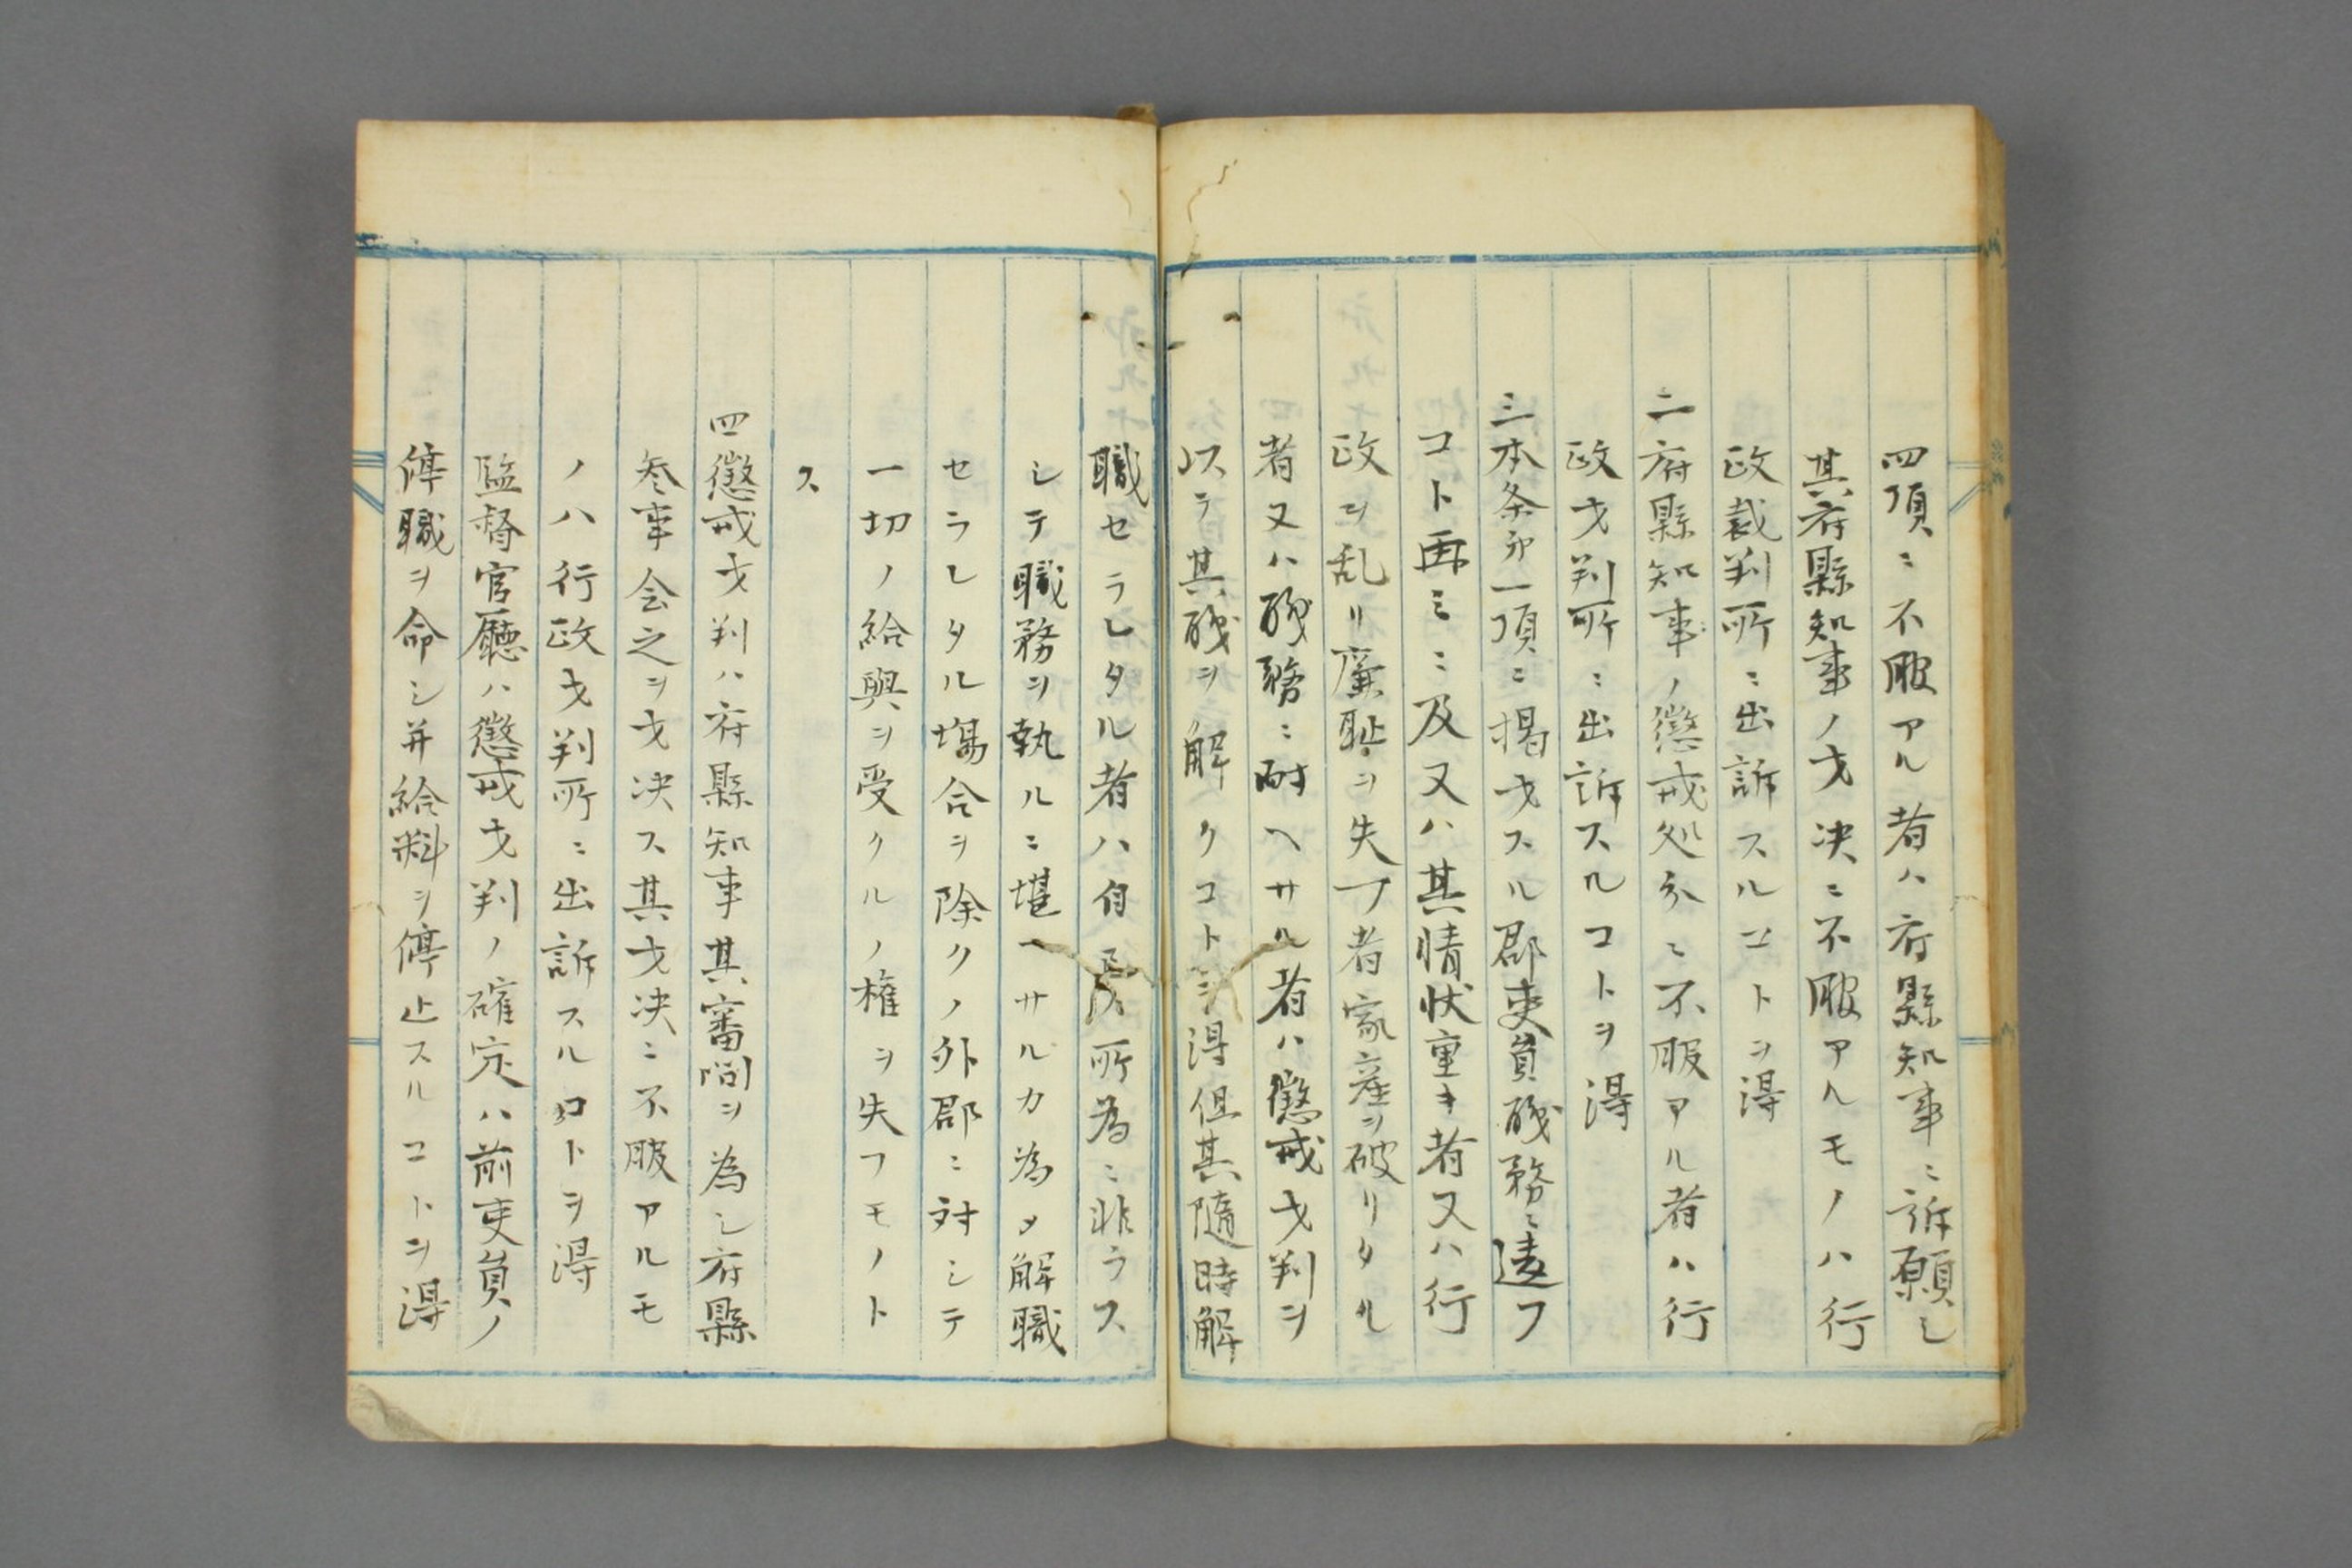 四項ニ不服アル者ハ府縣知事ニ訴願シ
其府縣知事ノ才决ニ不服アルモノハ行
政裁判所ニ出訴スルコトヲ得
二府縣知事ノ懲戒処分ニ不服アル者ハ行
政才判所ニ出訴スルコトヲ得
三本条第一項ニ掲才スル郡吏員職務ニ違フ
コト再ミニ及又ハ其情状重キ者又ハ行
政ヲ乱リ廉耻ヲ失フ者家産ヲ破リタル
者又ハ職務ニ耐ヘサル者ハ懲戒才判ヲ
以テ其職ヲ解クコトヲ得但其隨時解
職セラレタル者ハ自己ノ所為ニ非ラス
シテ職務ヲ執ルニ堪ヘサルカ為メ解職
セラレタル場合ヲ除クノ外郡ニ対シテ
一切ノ給與ヲ受クルノ権ヲ失フモノト
ス
四懲戒才判ハ府縣知事其審問ヲ為シ府縣
参事会之ヲ才决ス其才决ニ不服アルモ
ノハ行政才判所ニ出訴スルコトヲ得
監督官廳ハ懲戒才判ノ確定ハ前吏員ノ
停職ヲ命シ并給料ヲ停止スルコトヲ得